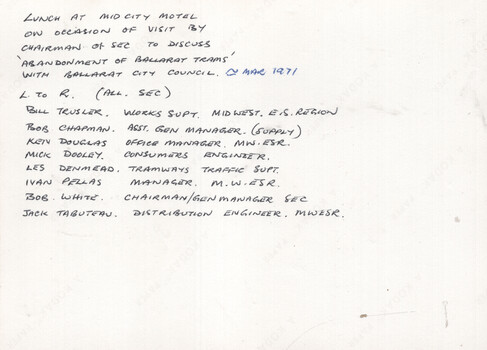 LUNCH AT MID CITY MOTEL
ON OCCASION OF VISIT BY
CHAIRMAN of SEC TO DISCUSS
'ABANDONMENT OF BALLARAT TRAMS'
WITH BALLARAT CITY COUNCIL. MAR 1971
L. TO R. (ALL. SEC)
BILL TRUSLER. WORKS SUPT. MIDWEST. E.S. REGION
BOB CHAPMAN. ASST. GEN MANAGER. (SUPPLY)
KEN DOUGLAS OFFICE MANAGER. MW-ESR.
MICK DOOLEY. CONSUMERS ENGINEER.
LES DENMEAD. TRAMWAYS TRAFFIC SUPT.
IVAN PELLAS MANAGER. M.W-ESR.
BOB. WHITE. CHAIRMAN/GEN MANAGER SEC
JACK TABUTEAU. DISTRIBUTION ENGINEER. MWESR.